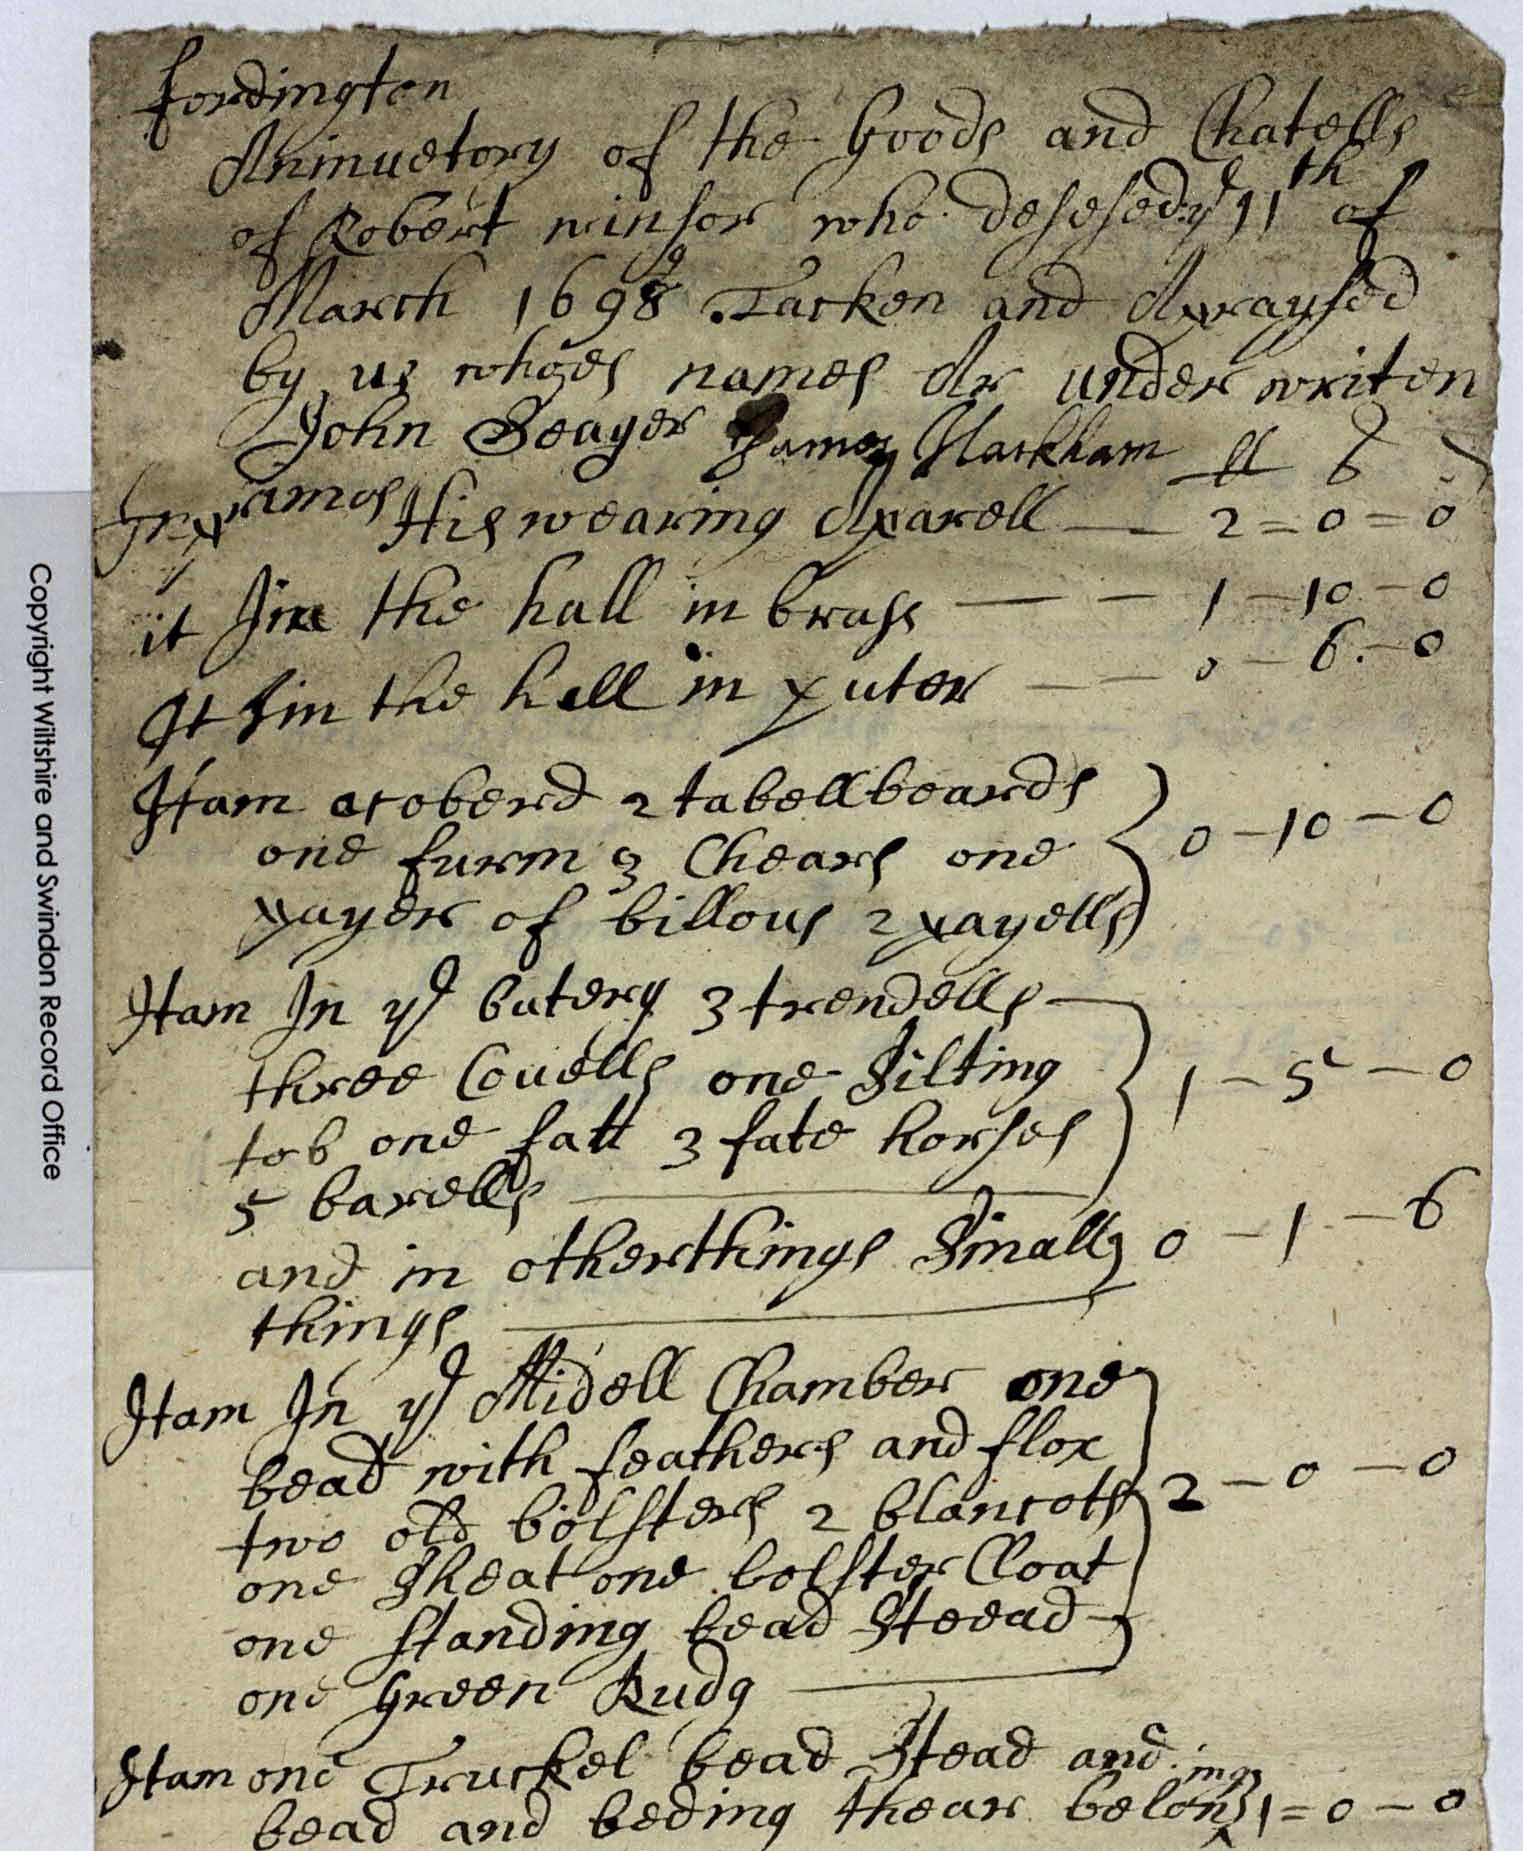 fordington
Aninuetory of the Goods and Chatells
of Robert winsor who desesed ye 11th of
March 1698/9 Tacken and Apraysed
by us whoses names Ar under writen
John Seager James Markham ll s d
Inpramos His wearing Aparell — 2=0=0
it Jin the hall in brass — — 1-10-0
It Jin the hall in puter — — 0-6-0
Itam a coberd 2 tabellboards
one furm 3 Chears one 0-10-0
payer of billous 2 payells
Itam In ye butery 3 trendells
three Couells one Silting 1-5-0
tob one fatt 3 fate horses
5 barells
and in otherthings Smally 0-1-6
things
Itam In ye Midell Chamber one
bead with feathers and flox
two old bolsters 2 blancots 2-0-0
one Sheat one bolster Cloat
one standing bead Steead
one Green Rudg
Itam one Truckel bead Stead and
bead and beding thear belonging 1=0-0
Copyright Wiltshire and Swindon Record Office